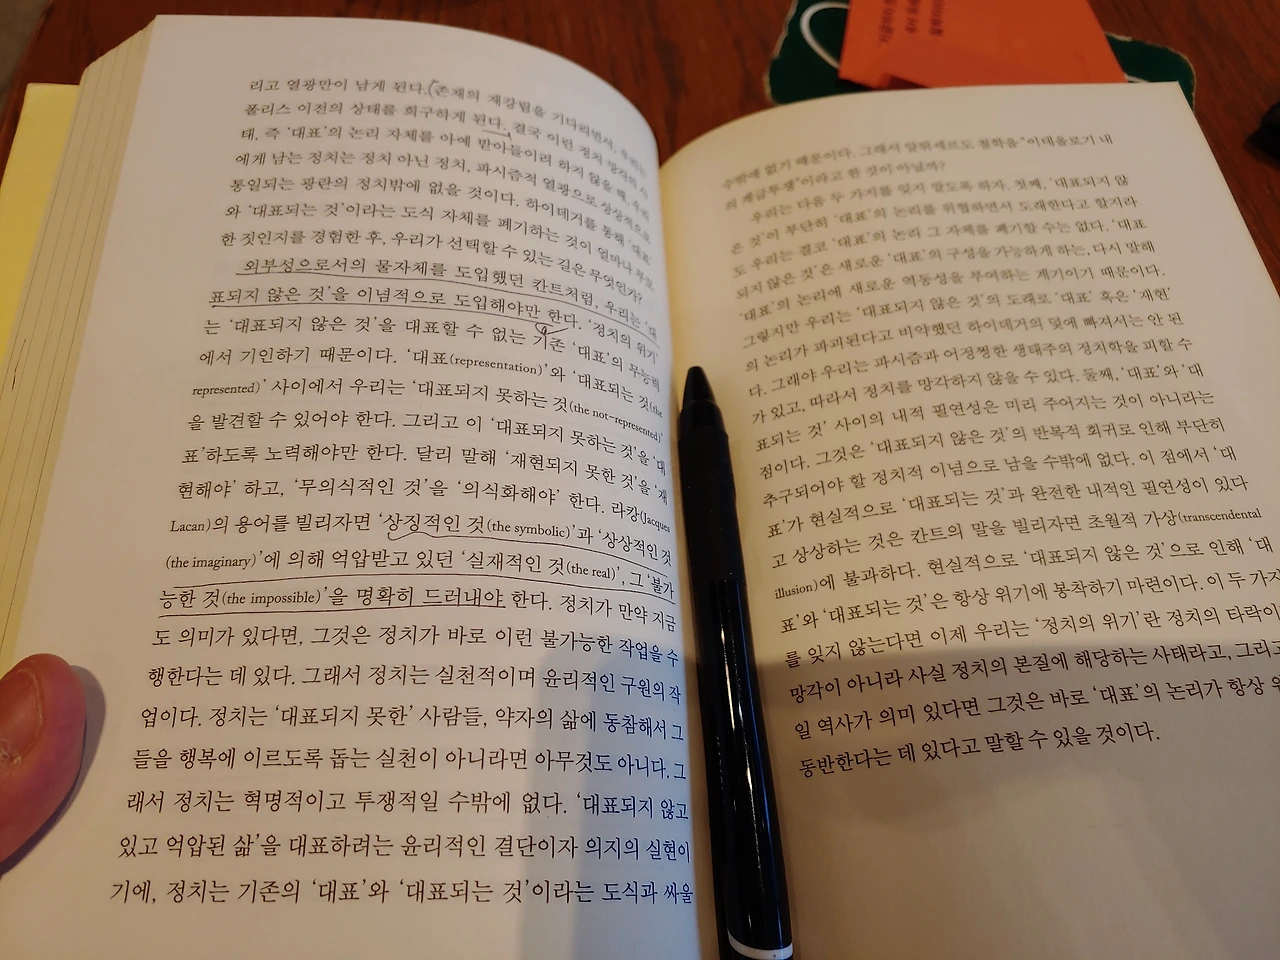 리고 열광만이 남게 된다. 존재의 재강림을 기다리면서, 우리는
폴리스 이전의 상태를 희구하게 된다. 결국 이런 정치 망각의 사
태, 즉 ‘대표’의 논리 자체를 아예 받아들이려 하지 않을 때, 우리
에게 남는 정치는 정치 아닌 정치, 파시즘적 열광으로 상상적으로
통일되는 광란의 정치밖에 없을 것이다. 하이데거를 통해 ‘대표’
와 ‘대표되는 것’이라는 도식 자체를 폐기하는 것이 얼마나
한 짓인지를 경험한 후, 우리가 선택할 수 있는 길은 무엇인가?
외부성으로서의 물자체를 도입했던 칸트처럼, 우리는 ‘대
표되지 않은 것’을 이념적으로 도입해야만 한다. ‘정치의 위기’
는 ‘대표되지 않은 것’을 대표할 수 없는 기존 ‘대표’의 무능력
에서 기인하기 때문이다. ‘대표(representation)’와 ‘대표되는 것(the
represented)’ 사이에서 우리는 ‘대표되지 못하는 것(the not-represented)’
을 발견할 수 있어야 한다. 그리고 이 ‘대표되지 못하는 것’을 ‘대
표’하도록 노력해야만 한다. 달리 말해 ‘재현되지 못한 것’을 ‘재
현해야’ 하고, ‘무의식적인 것’을 ‘의식화해야’ 한다. 라캉(Jacques
Lacan)의 용어를 빌리자면 ‘상징적인 것(the symbolic)’과 ‘상상적인 것
(the imaginary)’에 의해 억압받고 있던 ‘실재적인 것(the real)’, 그 ‘불가
능한 것(the impossible)’을 명확히 드러내야 한다. 정치가 만약 지금
도 의미가 있다면, 그것은 정치가 바로 이런 불가능한 작업을 수
행한다는 데 있다. 그래서 정치는 실천적이며 윤리적인 구원의 작
업이다. 정치는 ‘대표되지 못한’ 사람들, 약자의 삶에 동참해서 그
들을 행복에 이르도록 돕는 실천이 아니라면 아무것도 아니다. 그
래서 정치는 혁명적이고 투쟁적일 수밖에 없다. ‘대표되지 않고
있고 억압된 삶’을 대표하려는 윤리적인 결단이자 의지의 실현이
기에, 정치는 기존의 ‘대표’와 ‘대표되는 것’이라는 도식과 싸울
수밖에 없기 때문이다. 그래서 알튀세르도 철학을 “이데올로기 내
의 계급투쟁”이라고 한 것이 아닐까?
우리는 다음 두 가지를 잊지 말도록 하자. 첫째, ‘대표되지 않
은 것’이 부단히 ‘대표’의 논리를 위협하면서 도래한다고 할지라
도 우리는 결코 ‘대표’의 논리 그 자체를 폐기할 수는 없다. ‘대표
되지 않은 것’은 새로운 ‘대표’의 구성을 가능하게 하는, 다시 말해
‘대표’의 논리에 새로운 역동성을 부여하는 계기이기 때문이다.
그렇지만 우리는 ‘대표되지 않은 것’의 도래로 ‘대표’ 혹은 ‘재현’
의 논리가 파괴된다고 비약했던 하이데거의 덫에 빠져서는 안 된
다. 그래야 우리는 파시즘과 어정쩡한 생태주의 정치학을 피할 수
가 있고, 따라서 정치를 망각하지 않을 수 있다. 둘째, ‘대표’와 ‘대
표되는 것’ 사이의 내적 필연성은 미리 주어지는 것이 아니라는
점이다. 그것은 ‘대표되지 않은 것’의 반복적 회귀로 인해 부단히
추구되어야 할 정치적 이념으로 남을 수밖에 없다. 이 점에서 ‘대
표’가 현실적으로 ‘대표되는 것’과 완전한 내적인 필연성이 있다
고 상상하는 것은 칸트의 말을 빌리자면 초월적 가상(transcendental
illusion)에 불과하다. 현실적으로 ‘대표되지 않은 것’으로 인해 ‘대
표’와 ‘대표되는 것’은 항상 위기에 봉착하기 마련이다. 이 두 가지
를 잊지 않는다면 이제 우리는 ‘정치의 위기’란 정치의 타락이
망각이 아니라 사실 정치의 본질에 해당하는 사태라고, 그리고
일 역사가 의미 있다면 그것은 바로 ‘대표’의 논리가 항상
동반한다는 데 있다고 말할 수 있을 것이다.